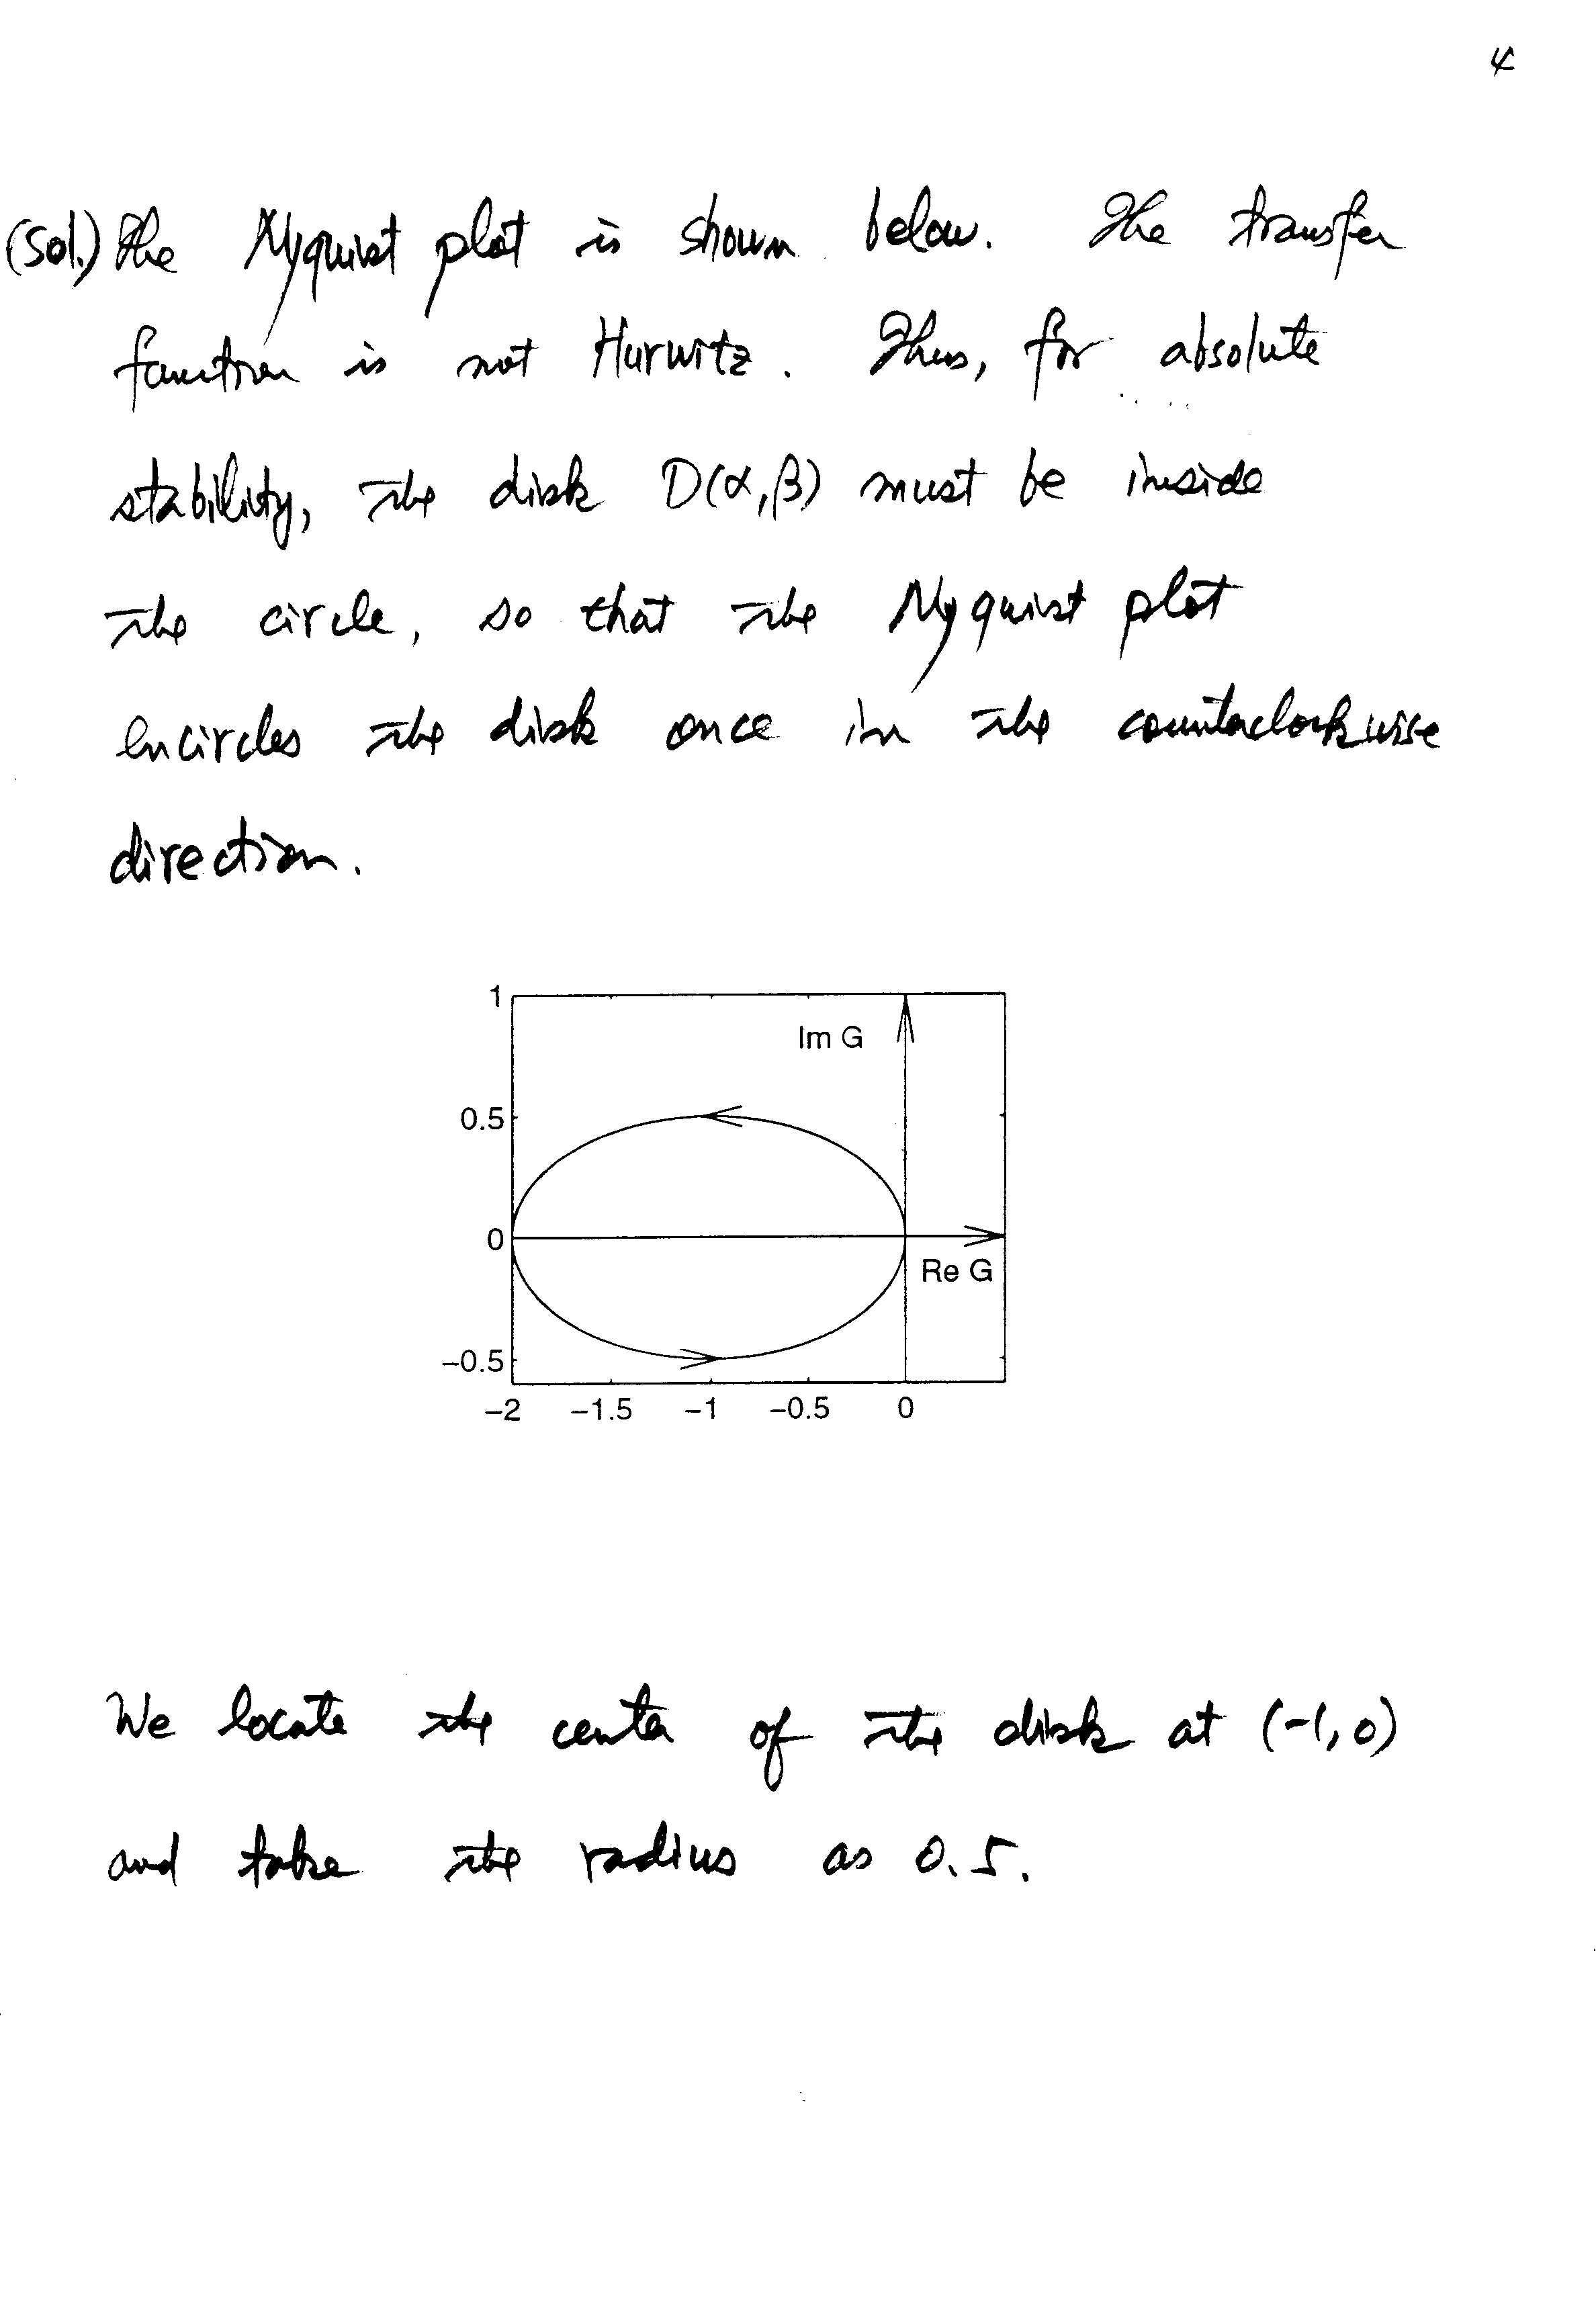 4
(sol.) The Nyquist plot is shown below. The transfer
function is not Hurwitz. Thus, for absolute
stability, the disk D(α,β) must be inside
the circle, so that the Nyquist plot
encircles the disk once in the counterclockwise
direction.
1
Im G
0.5
0
Re G
−0.5
−2 −1.5 −1 −0.5 0
We locate the center of the disk at (-1, 0)
and take the radius as 0.5.